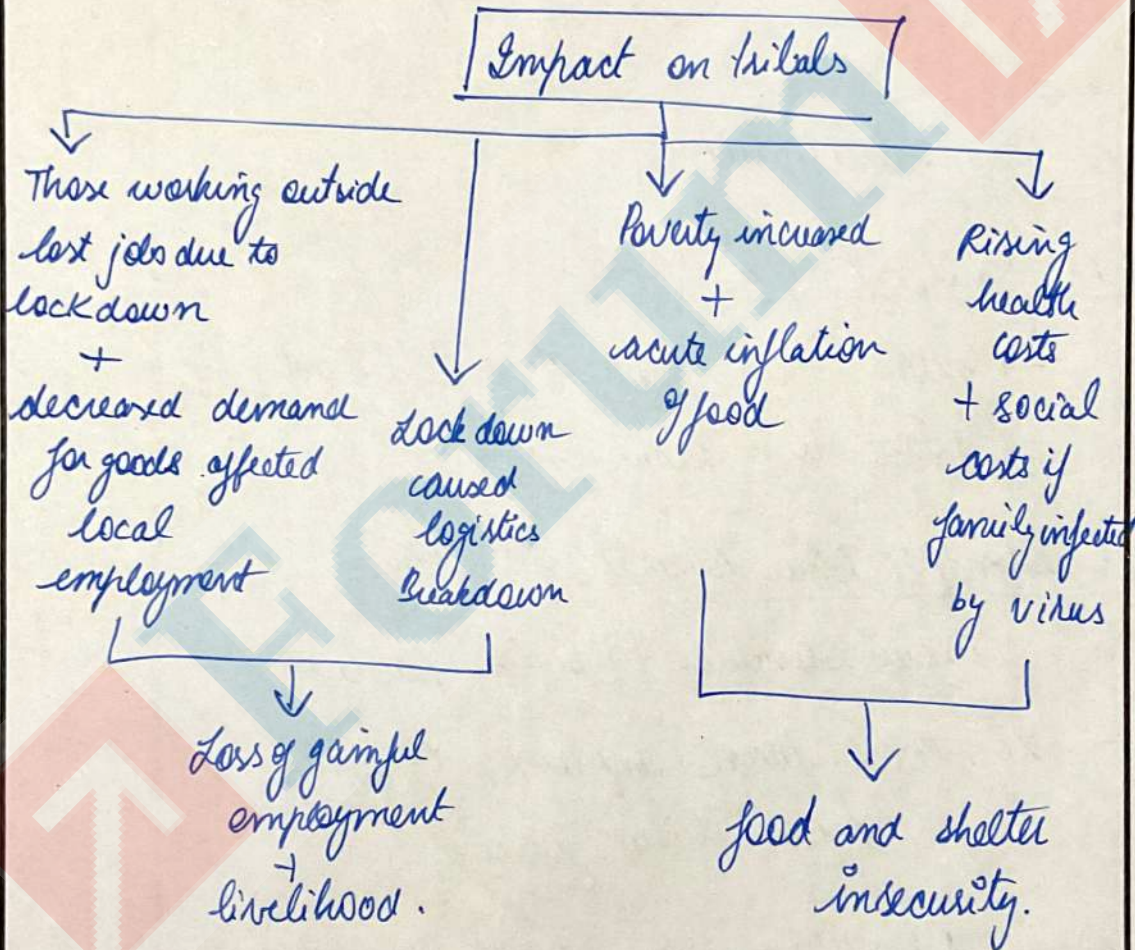 Impact on tribals
Those working outside
lost jobs due to
lockdown
+
decreased demand
for goods affected
local
employment
Lockdown
caused
logistics
Breakdown
Poverty increased
+
acute inflation
of food
Rising
health
costs
+ social
costs if
family infected
by virus
Loss of gainful
employment
+
livelihood.
food and shelter
insecurity.
Forum